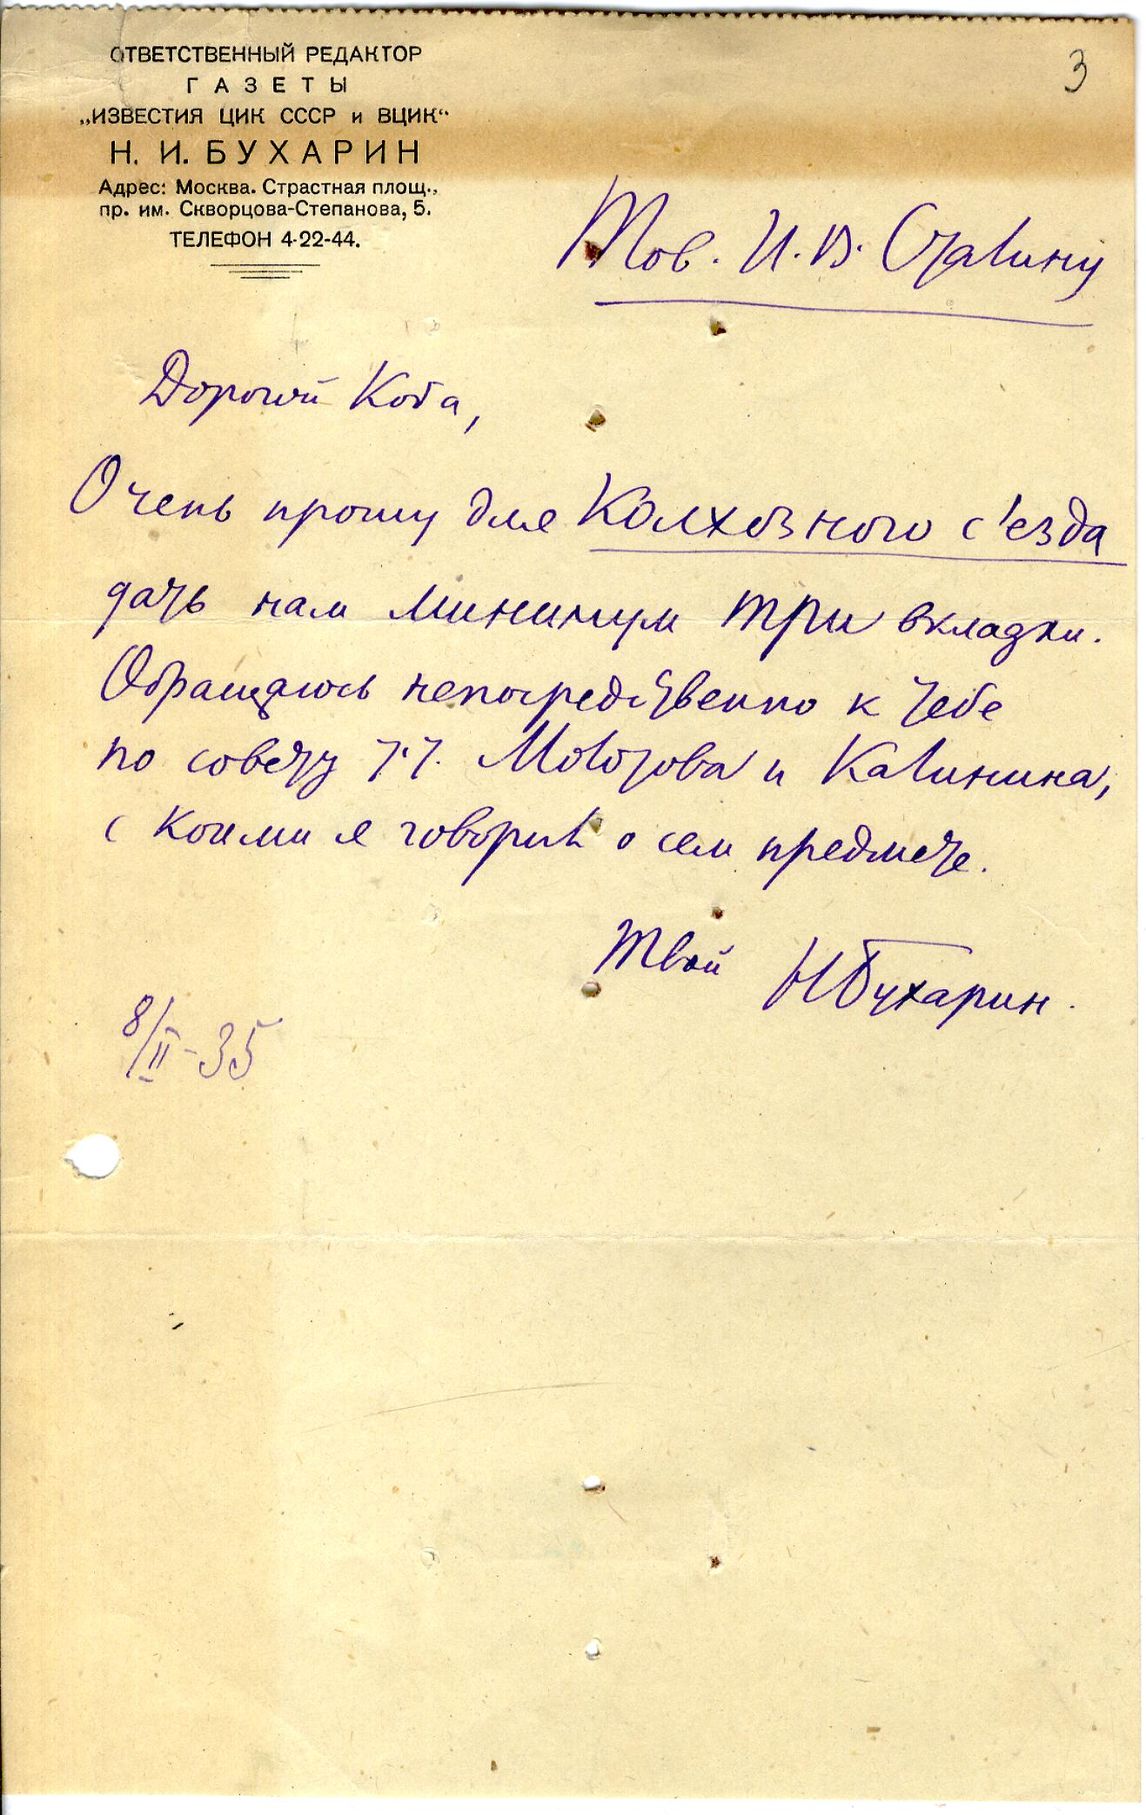 ОТВЕТСТВЕННЫЙ РЕДАКТОР
ГАЗЕТЫ
„ИЗВЕСТИЯ ЦИК СССР и ВЦИК“
Н. И. БУХАРИН
Адрес: Москва. Страстная площ.,
пр. им. Скворцова-Степанова, 5.
ТЕЛЕФОН 4-22-44.
3
Тов. И. В. Сталину
Дорогой Коба,
Очень прошу для Колхозного с'езда
дать нам минимум три вкладки.
Обращаюсь непосредственно к тебе
по совету т.т. Молотова и Калинина,
с коими я говорил о сем предмете.
Твой Н Бухарин.
8/II-35